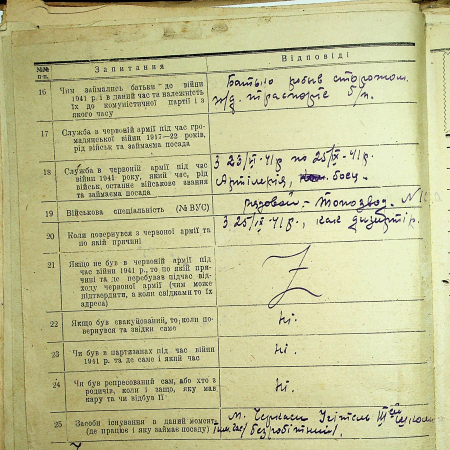 №№ п-п.
Запитання
Відповіді
16
Чим займались батьки до війни
1941 р. і в даний час та належність
їх до комуністичної партії і з
якого часу
Батько робыв сторожом
ж/д. транспорте б/п.
17
Служба а червоній армії під час гро-
мадянської війни 1917—22 років,
рід військ та займаєма посада
18
Служба в червоній армії під час
війни 1941 року, який час, рід
військ, останнє військове звання
та займаєма посада
З 23/VI-41р по 25/IX-41р.
Артілерія, боєц.
рядовой
19
Військова спеціальність (№ ВУС)
Топозвод. №
20
Коли повернувся з червоної армії та
по якій причині
З 25/IX-41р., как дизертір.
21
Якщо не був в червоній армії під
час війни 1941 р., то по якій при-
чині та де перебував підчас від-
ходу червоної армії (чим може
підтвердити, а коли свідками то їх
адреса)
Z
22
Якщо був евакуйований, то, коли по-
вернувся та звідки саме
Ні.
23
Чи був в партизанах під час війни
1941 р. та де саме і який час
Ні.
24
Чи був репресований сам, або хто з
родичів, коли і защо, яку мав
кару та чи відбув її
Ні.
25
Засоби існування в даний момент
(де працює і яку займає посаду)
м. Черкаси Учітель
безробітний/.